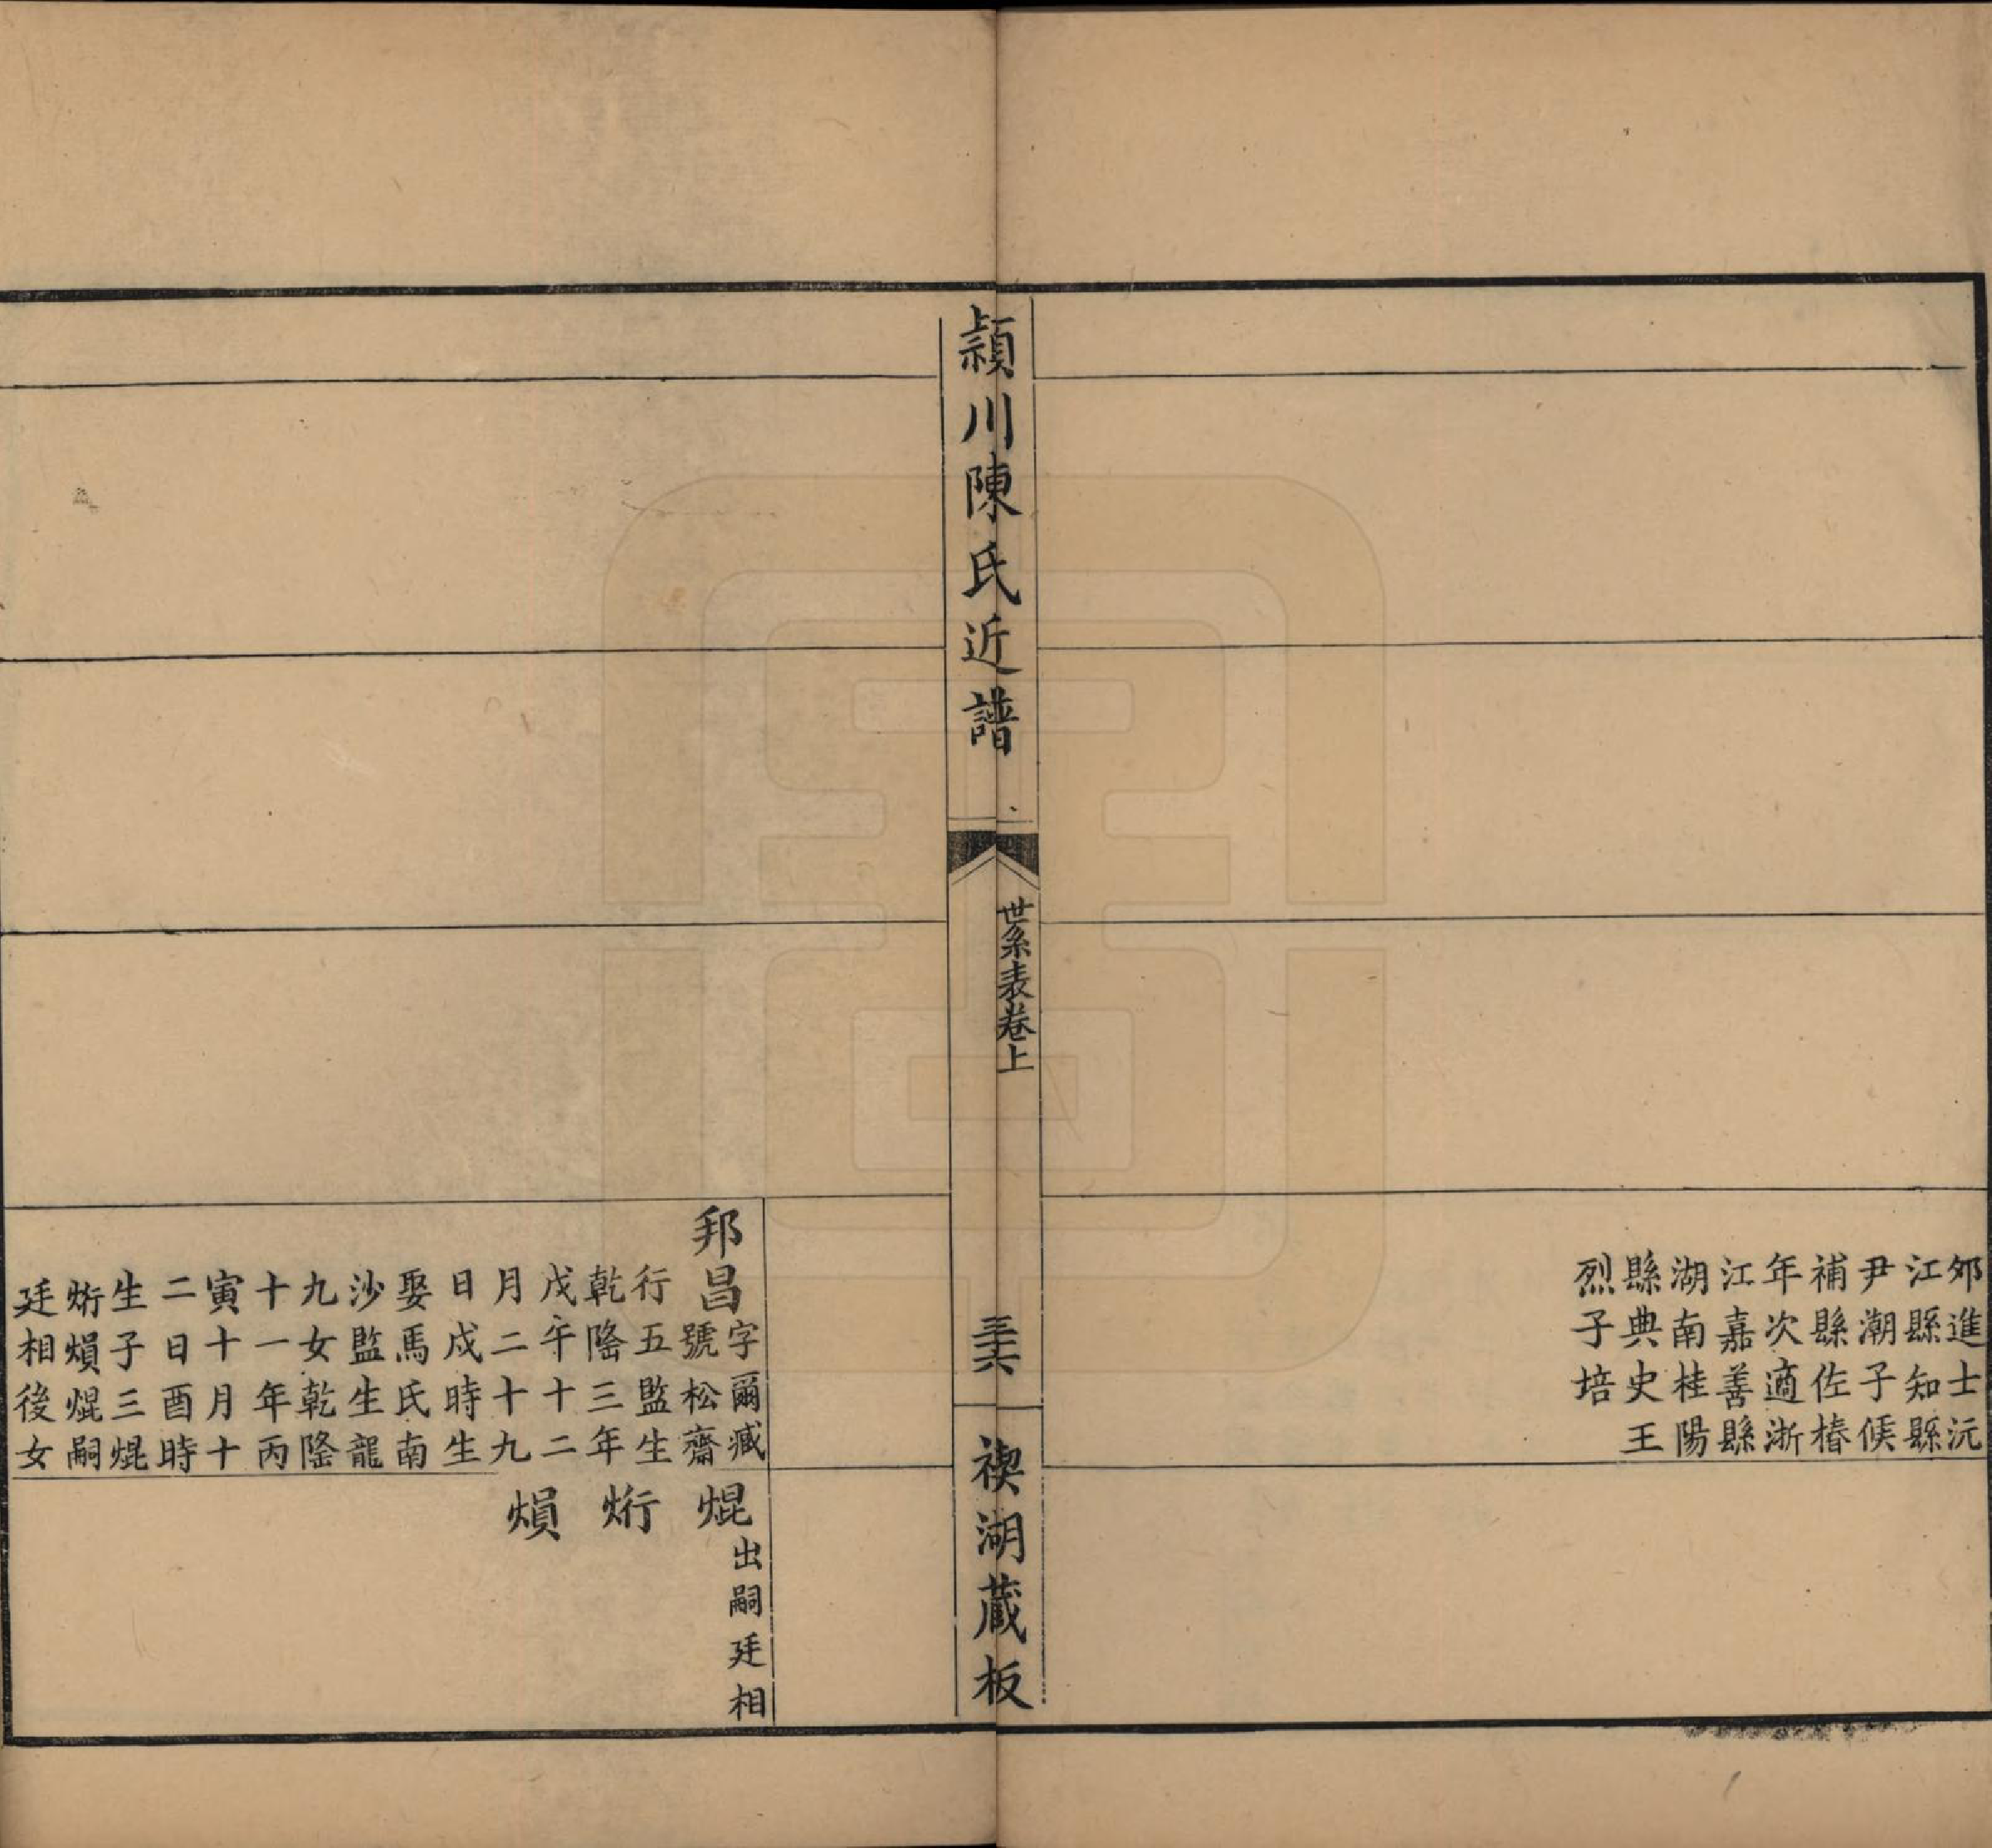 邜進士沅
江縣知縣
尹潮子候
補縣佐椿
年次適浙
江嘉善縣
湖南桂陽
縣典史王
烈子培
穎川陳氏近譜
世系表卷上
三十六
禊湖藏板
邦昌
字爾臧
號松齋
行五監生
乾隆三年
戊午十二
月二十九
日戌時生
娶馬氏南
沙監生龍
九女乾隆
十一年丙
寅十月十
二日酉時
生子三焜
烆熉焜嗣
廷相後女
焜
出嗣廷相
烆
熉